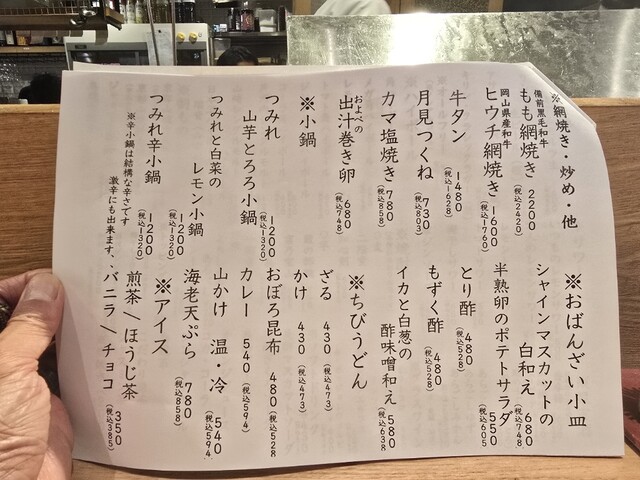 ※網焼き・炒め・他
備前黒毛和牛
もも網焼き 2200
(税込2420)
岡山県産和牛
ヒウチ網焼き 1600
(税込1760)
牛タン 1480
(税込1628)
月見つくね 730
(税込803)
カマ塩焼き 780
(税込858)
およべの
出汁巻き卵 680
(税込748)
※小鍋
つみれ
山芋とろろ小鍋 1200
(税込1320)
つみれと白菜の
レモン小鍋 1200
(税込1320)
つみれ辛小鍋 1200
(税込1320)
※辛小鍋は結構な辛さです
激辛にも出来ます、、
※おばんざい小皿
シャインマスカットの
白和え 680
(税込748)
半熟卵のポテトサラダ 550
(税込605)
とり酢 480
(税込528)
もずく酢 480
(税込528)
イカと白葱の
酢味噌和え 580
(税込638)
※ちびうどん
ざる 430
(税込473)
かけ 430
(税込473)
おぼろ昆布 480
(税込528)
カレー 540
(税込594)
山かけ 温・冷 540
(税込594)
海老天ぷら 780
(税込858)
※アイス
煎茶/ほうじ茶
バニラ/チョコ 350
(税込385)